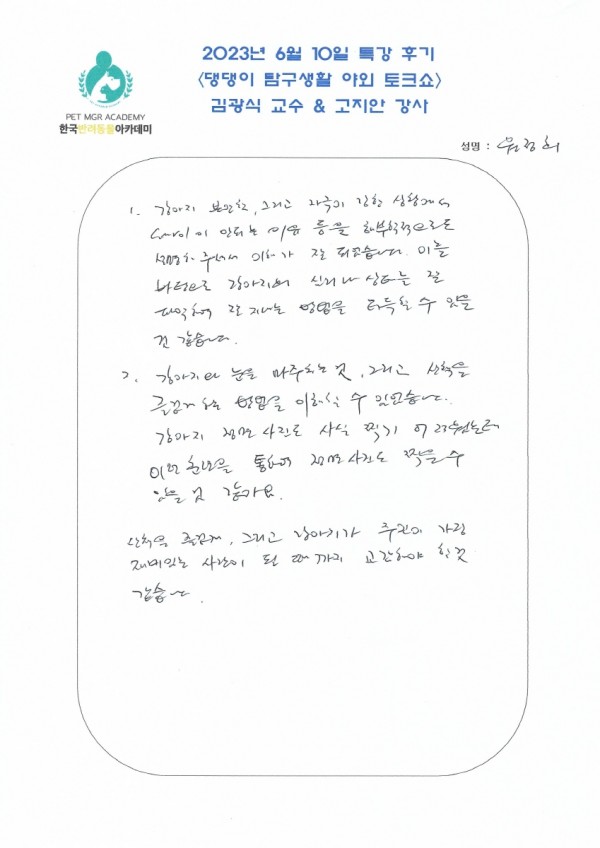 2023년 6월 10일 특강 후기
<댕댕이 탐구생활 야외 토크쇼>
김광식 교수 & 고지안 강사
PET MGR ACADEMY
한국반려동물아카데미
성명 :
1. 강아지 보면, 그리고 자극이 강한 상황에서
이 안되는 이유 등을 해부학적으로도
설명해 주셔서 이해가 잘 되었습니다. 이를
바탕으로 강아지의 심리나 상태는 잘
파악하여 잘 지내는 방법을 터득할 수 있을
것 같습니다.
2. 강아지와 눈을 마주하는 것, 그리고 산책을
즐겁게 하는 방법을 이해할 수 있었습니다.
강아지 정면 사진도 사실 찍기 어려웠는데
이번 훈련을 통하여 정면 사진도 찍을 수
있을 것 같아요.
산책을 즐겁게, 그리고 강아지가 주인이 가장
재미있는 사람이 될 때까지 교감해야 할 것
같습니다.